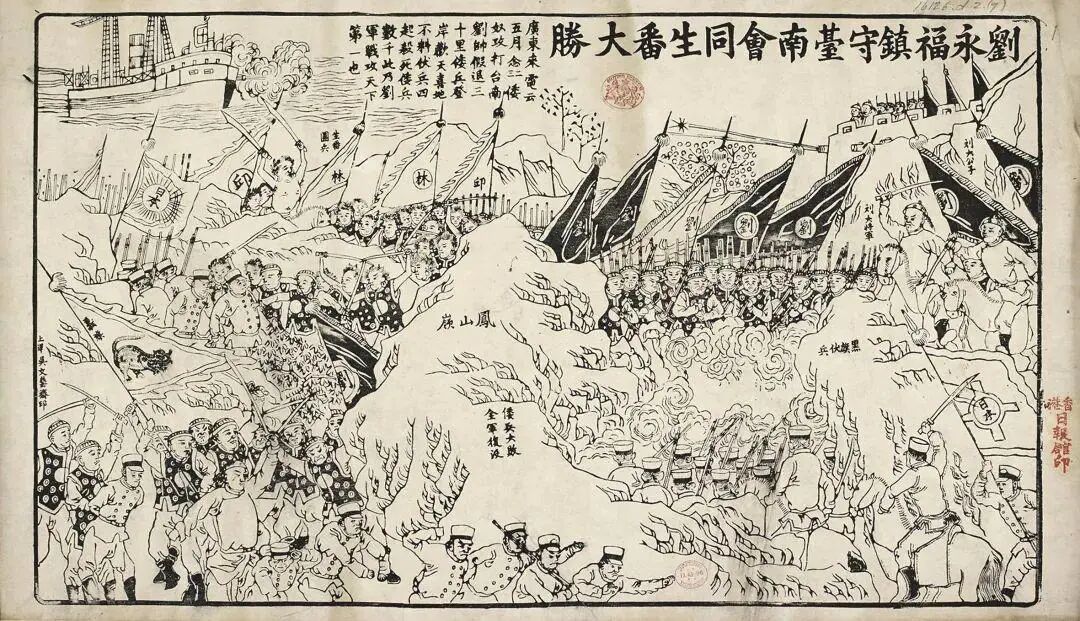 16126.d.2.(7)
劉永福鎮守臺南會同生番大勝
廣東來電云
五月念三倭
奴攻打台南
劉帥假退三
十里倭兵登
岸歡天喜地
不料伏兵四
起殺死倭兵
數千此乃劉
軍戰攻天下
第一也
刘大公子
刘大将軍
劉
劉
劉
劉
邱
林
林
邱
生番
團兵
日本
鳳山嶺
黑旗伏兵
倭兵大敗
全軍復沒
日本
香港
日報館印